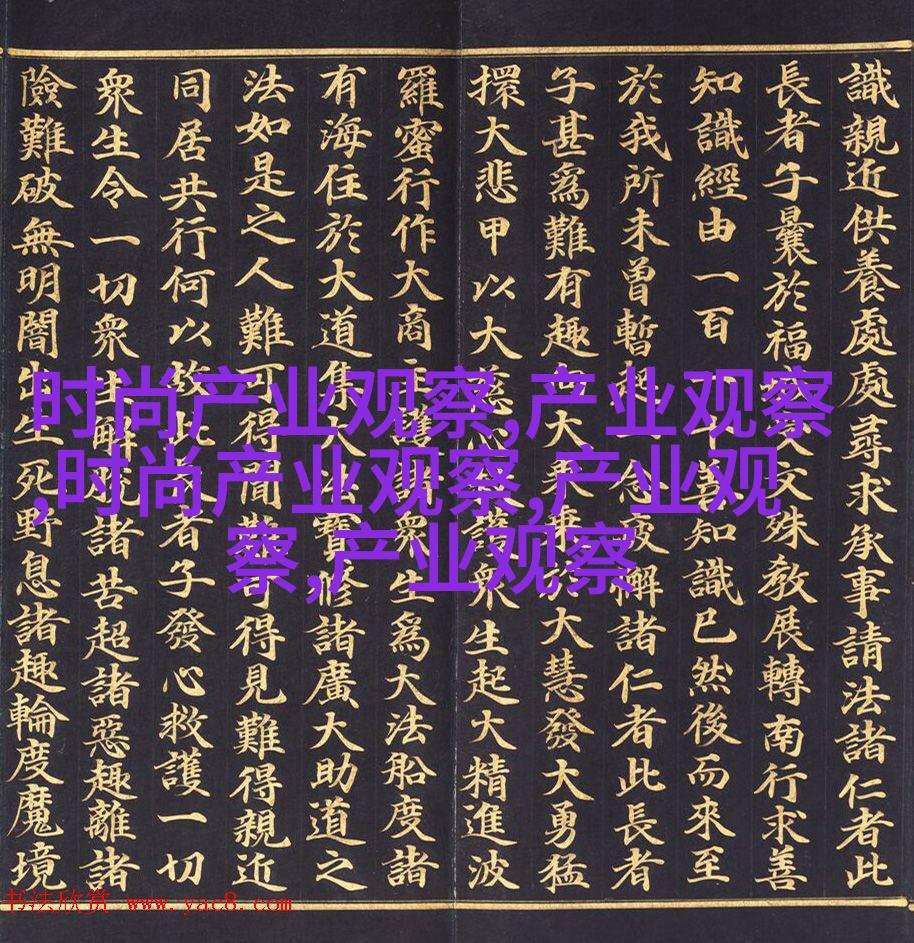 識親近供養處處尋求承事請法諸仁者此
長者子曩於福文殊教展轉南行求善
知識經由一百一十善知識已然後而來至
於我所未曾暫起一念疲懈諸仁者此長者
子甚爲難有趣向大乘乘於大慧發大勇猛
擐大悲甲以大慈心救護衆生起大精進波
羅蜜行作大商主護諸衆生爲大法船度諸
有海住於大道集大法寶修諸廣大助道之
法如是之人難可得聞難可得見難得親近
同居共行何以故此長者子發心救護一切
衆生令一切衆生解脫諸苦超諸惡趣離諸
險難破無明闇出生死野息諸趣輪度魔境
时尚产业观察,产业观察
,时尚产业观察,产业观
察,产业观察
书法欣赏 www.yac8.com